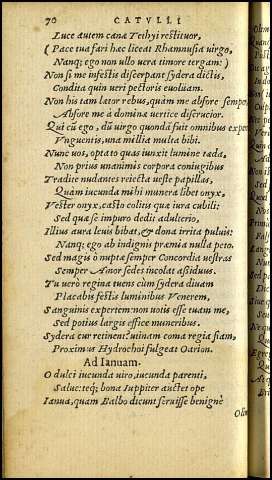 70 CATVLLI
Luce autem cana Tethyi restituor,
(Pace tua fari hæc liceat Rhamnusia uirgo,
Nanq; ego non ullo uera timore tergam:)
Non si me infestis discerpant sydera dictis,
Condita quin ueri pectoris euoluam.
Non his tam lætor rebus, quàm me abfore semper
Abfore me à dominæ uertice discrucior.
Qui cũ ego, dũ uirgo quondã fuit omnibus expers
Vnguentis, una millia multa bibi.
Nunc uos, optato quas iunxit lumine tæda,
Non prius unanimis corpora coniugibus
Tradite nudantes reiecta ueste papillas,
Quàm iucunda mihi munera libet onyx,
Vester onyx, casto colitis quæ iura cubili:
Sed quæ se impuro dedit adulterio,
Illius aura leuis bibat, & dona irrita puluis:
Nanq; ego ab indignis præmia nulla peto.
Sed magis ô nuptæ semper Concordia uestras
Semper Amor sedes incolat assiduus.
Tu uerò regina tuens cum sydera diuam
Placabis festis luminibus Venerem,
Sanguinis expertem: non uotis esse tuam me,
Sed potius largis effice muneribus.
Sydera cur retinent? utinam coma regia fiam,
Proximus Hydrochoi fulgeat Oarion.
Ad Ianuam.
O dulci iucunda uiro, iucunda parenti,
Salue: teq; bona Iuppiter auctet ope
Ianua, quam Balbo dicunt seruisse benignè
Olim